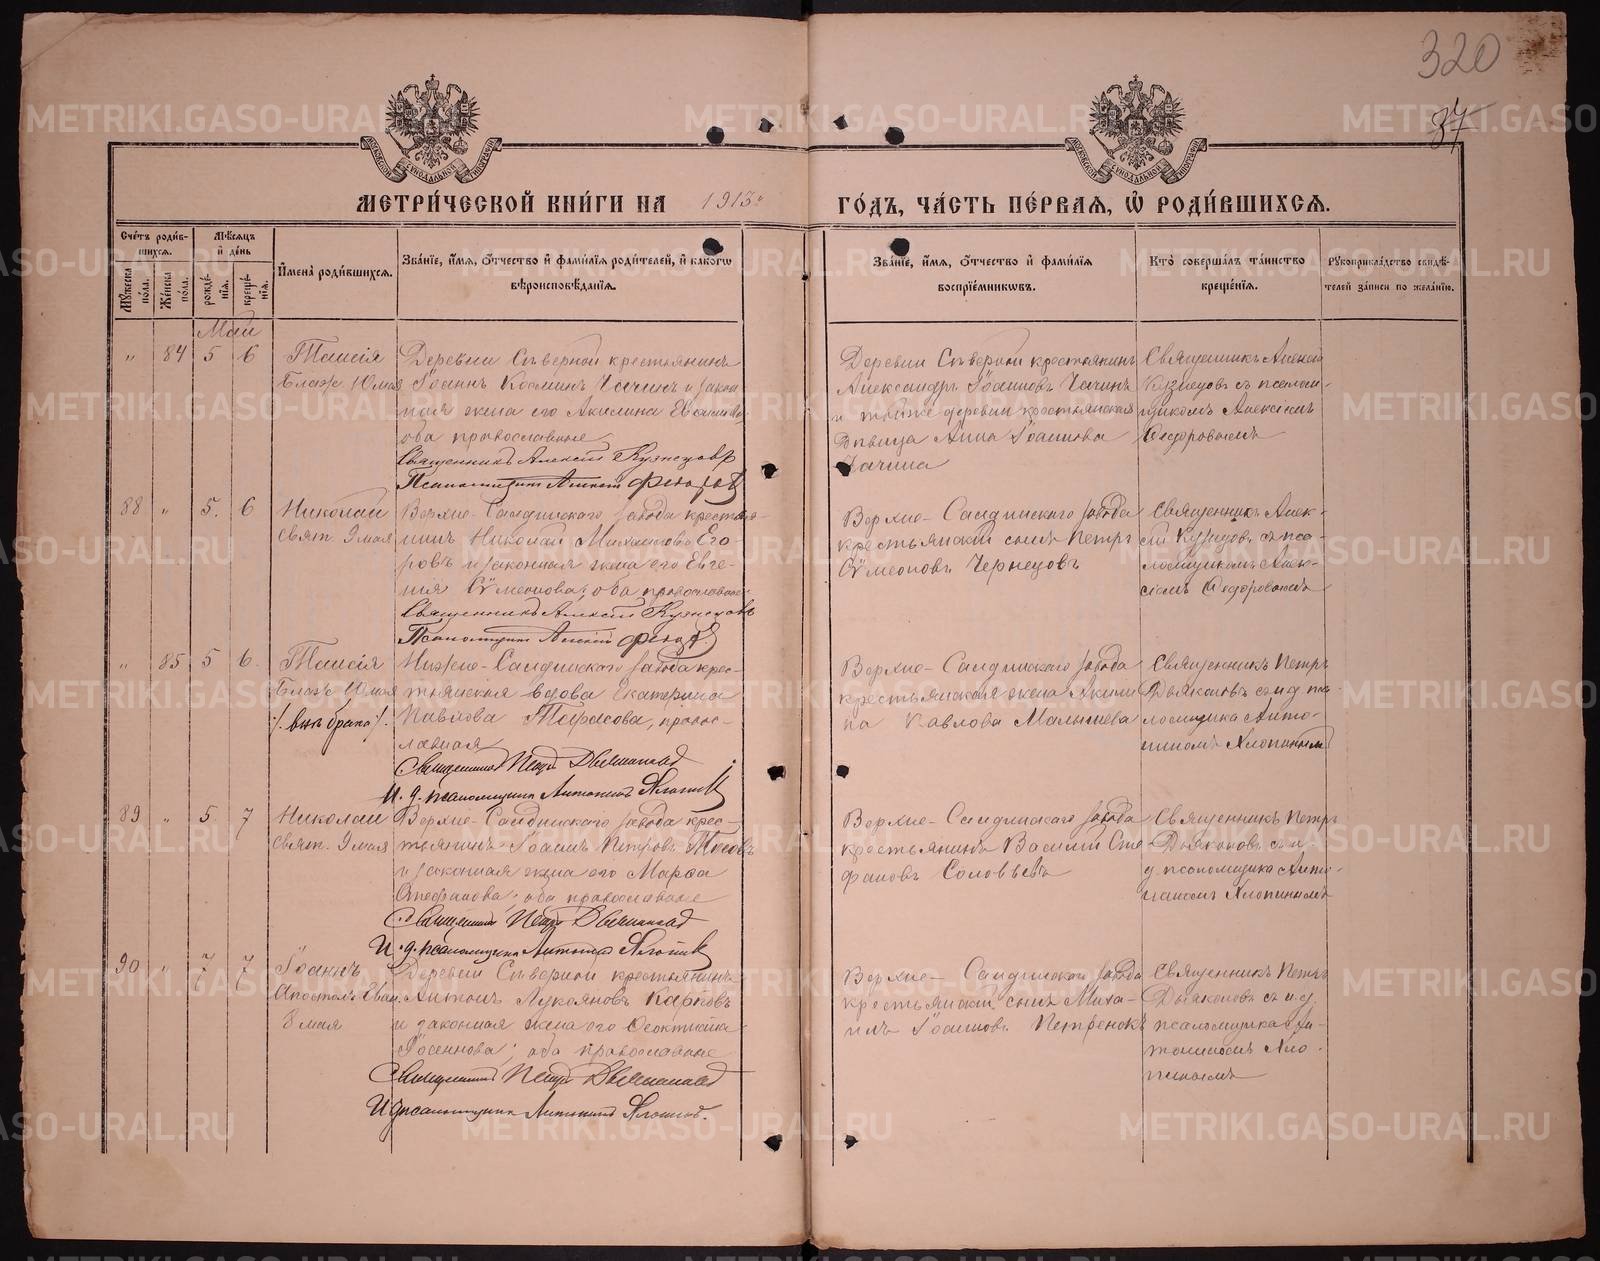 320
87
МЕТРИ́ЧЕСКОЙ КНИ́ГИ НА 1913 ГО́ДЪ, ЧА́СТЬ ПЕ́РВАЯ, Ѡ РОДИ́ВШИХСЯ.
Сче́тъ роди́вшихся.
Мꙋ́жеска по́ла.
Же́нска по́ла.
Мѣ́сяцъ и де́нь
рожде́нїя.
креще́нїя.
Имена̀ роди́вшихся.
Зва́нїе, и́мя, о́тчество и фами́лїя роди́телей, и како́гѡ вѣроисповѣ́данїя.
Зва́нїе, и́мя, о́тчество и фами́лїя воспрїе́мникѡвъ.
Кто̀ соверша́лъ та́инство креще́нїя.
Рꙋкоприкла́дство свидѣ́телей за́писи по жела́нїю.
Май
„ 84 5 6
Таисія
Блаж. 10 мая
Деревни Сѣверной крестьянинъ
Іоаннъ Космин Чачинъ и закон
ная жена его Акилина
оба православные
Священникъ Алексій Кузнецовъ
Псаломщикъ Алексій
Деревни Сѣверной крестьянинъ
Александръ Іоанновъ Чачинъ
и тойже деревни крестьянская
дѣвица Анна Іоаннова
Чачина
Священникъ Алексій
Кузнецовъ съ псалом-
щикомъ Алексіемъ
Ѳедоровымъ
88 „ 5. 6
Николай
Свят. 9 мая
Верхне-Салдинскаго завода крестья-
нинъ Николай Михаиловъ Его-
ровъ и законная жена его Евге-
нія Сѵмеонова; оба православные
Священникъ Алексій Кузнецовъ
Псаломщикъ Алексій
Верхне-Салдинскаго завода
крестьянскій сынъ Петръ
Сѵмеоновъ Чернецовъ
Священникъ Алек-
сій Кузнецовъ съ пса-
ломщикомъ Алек-
сіемъ Ѳедоровымъ
„ 85 5 6.
Таисія
Блаж 10 мая
/. внѣ брака /.
Нижне-Салдинскаго завода крес-
тьянская вдова Екатерина
Павлова Тарасова, правос-
лавная
Священникъ Петръ Дьяконовъ
И. д. псаломщика Антонинъ Хлопинъ
Верхне-Салдинскаго завода
крестьянская жена Акили
на Павлова Малышева
Священникъ Петръ
Дьяконовъ съ и д пса
ломщика Анто-
ниномъ Хлопинымъ
89 „ 5. 7
Николай
Свят. 9 мая
Верхне-Салдинскаго завода крес-
тьянинъ Іоаннъ Петровъ
и законная жена его Марѳа
Стефанова; оба православные
Священникъ Петръ Дьяконовъ
И. д. псаломщика Антонинъ Хлопинъ
Верхне-Салдинскаго завода
крестьянинъ Василій Сте-
фановъ Соловьевъ
Священникъ Петръ
Дьяконовъ съ и.
д. псаломщика Анто-
ниномъ Хлопинымъ
90 „ 7 7
Іоаннъ
Апостолъ Еван.
8 мая
Деревни Сѣверной крестьянинъ
Антонъ Лукояновъ Карповъ
и законная жена его Ѳеоктиста
оба православные
Священникъ Петръ Дьяконовъ
И д псаломщика Антонинъ Хлопинъ.
Верхне-Салдинскаго завода
крестьянскій сынъ Миха-
илъ Іоанновъ Петренокъ
Священникъ Петръ
Дьяконовъ съ и. д.
псаломщика Ан-
тониномъ Хло-
пинымъ
METRIKI.GASO-URAL.RU